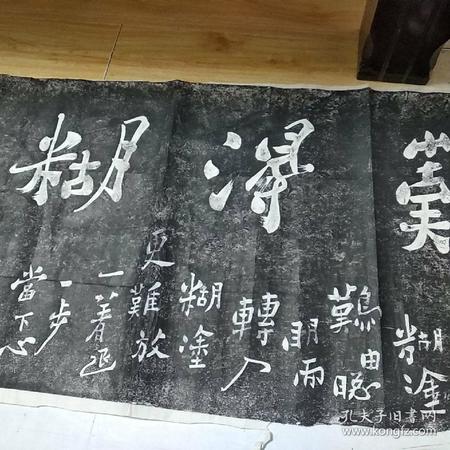 難得糊
糊塗
難由聰
明而
轉入
糊塗
更難放
一著退
一步
當下心
孔夫子旧书网
www.kongfz.com